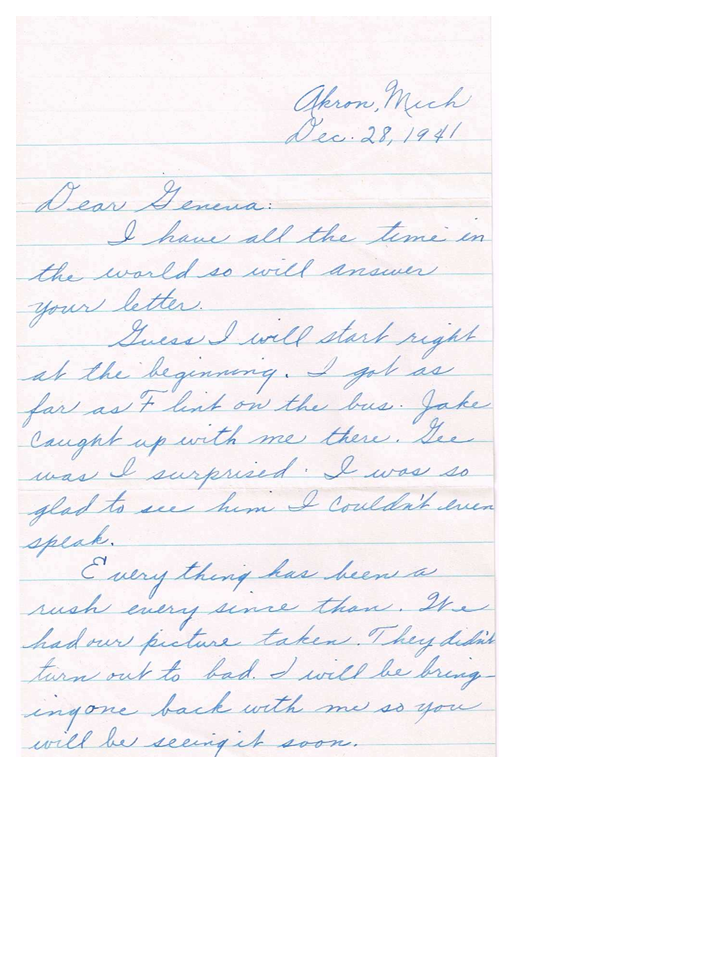 Akron, Mich
Dec. 28, 1941
Dear Geneva:
I have all the time in
the world so will answer
your letter.
Guess I will start right
at the beginning. I got as
far as Flint on the bus. Jake
caught up with me there. Gee
was I surprised. I was so
glad to see him I couldn't even
speak.
Every thing has been a
rush every since than. We
had our picture taken. They didn't
turn out to bad. I will be bring-
ing one back with me so you
will be seeing it soon.